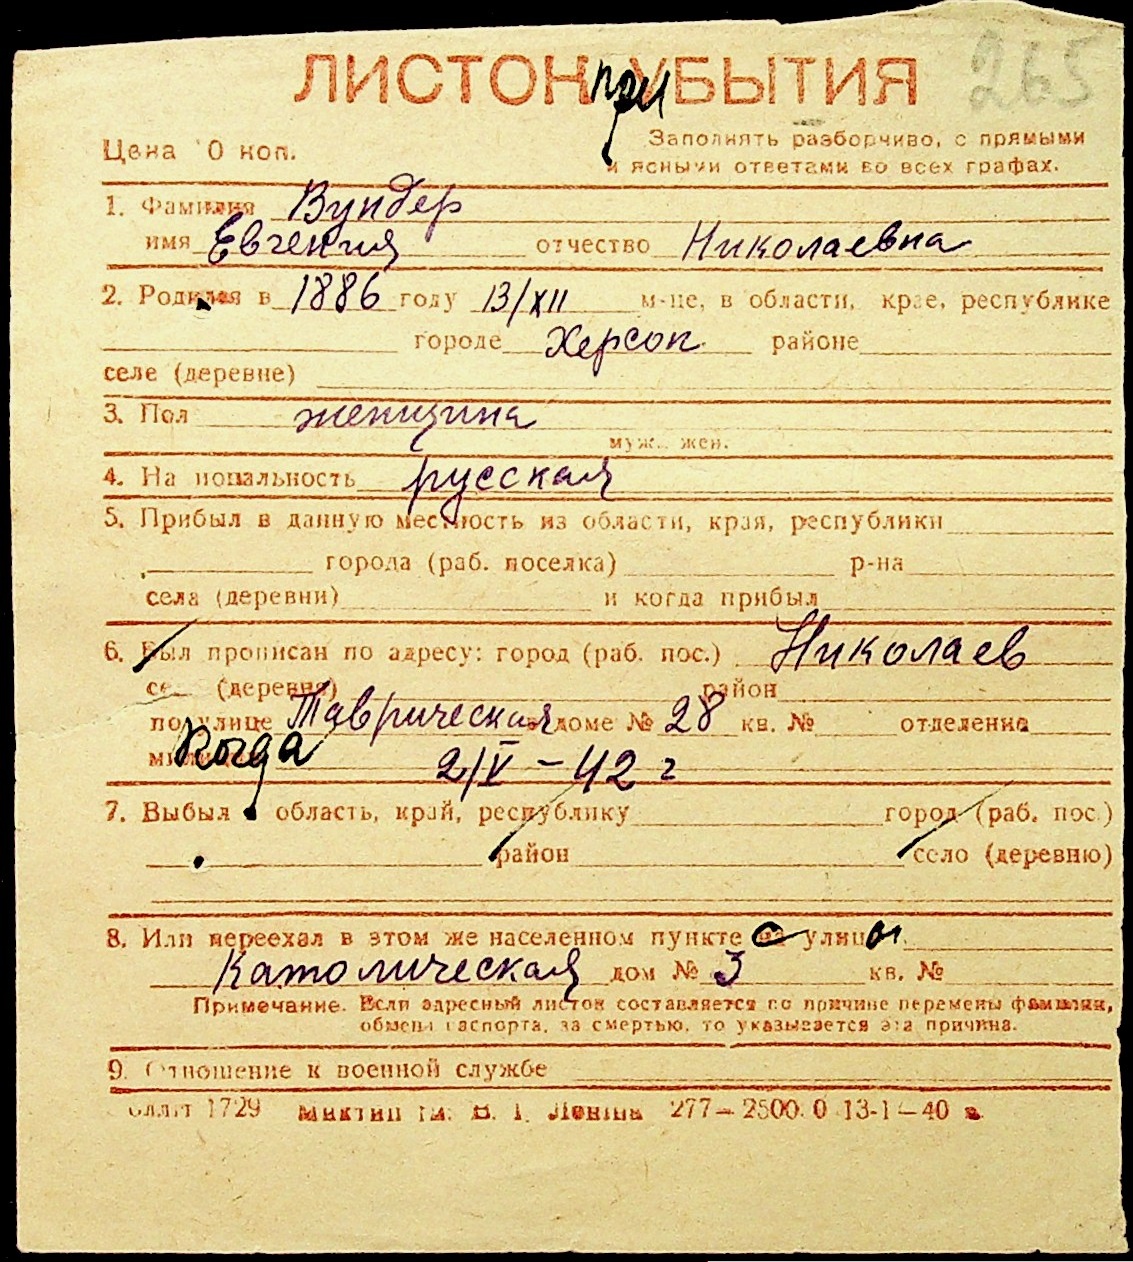 265
ЛИСТОК при УБЫТИЯ
Заполнять разборчиво, с прямыми
Цена 0 коп.
и ясными ответами во всех графах.
1. Фамилия Вундер
имя Евгения отчество Николаевна
2. Родился в 1886 году 13/XII м-це, в области, крае, республике
городе Херсон районе
селе (деревне)
3. Пол женщина
муж. жен.
4. Национальность русская
5. Прибыл в данную местность из области, края, республики
города (раб. поселка) р-на
села (деревни) и когда прибыл
6. Был прописан по адресу: город (раб. пос.) Николаев
се (деревне) район
по улице Таврическая доме № 28 кв. № отделения
когда 2/V - 42 г
7. Выбыл область, край, республику город (раб. пос.)
район село (деревню)
8. Или переехал в этом же населенном пункте с улицы
Католическая дом № 3 кв. №
Примечание. Если адресный листок составляется по причине перемены фамилии,
обмена паспорта, за смертью, то указывается эта причина.
9. Отношение к военной службе
1729 Ленина 277—2500.0 13-1-40